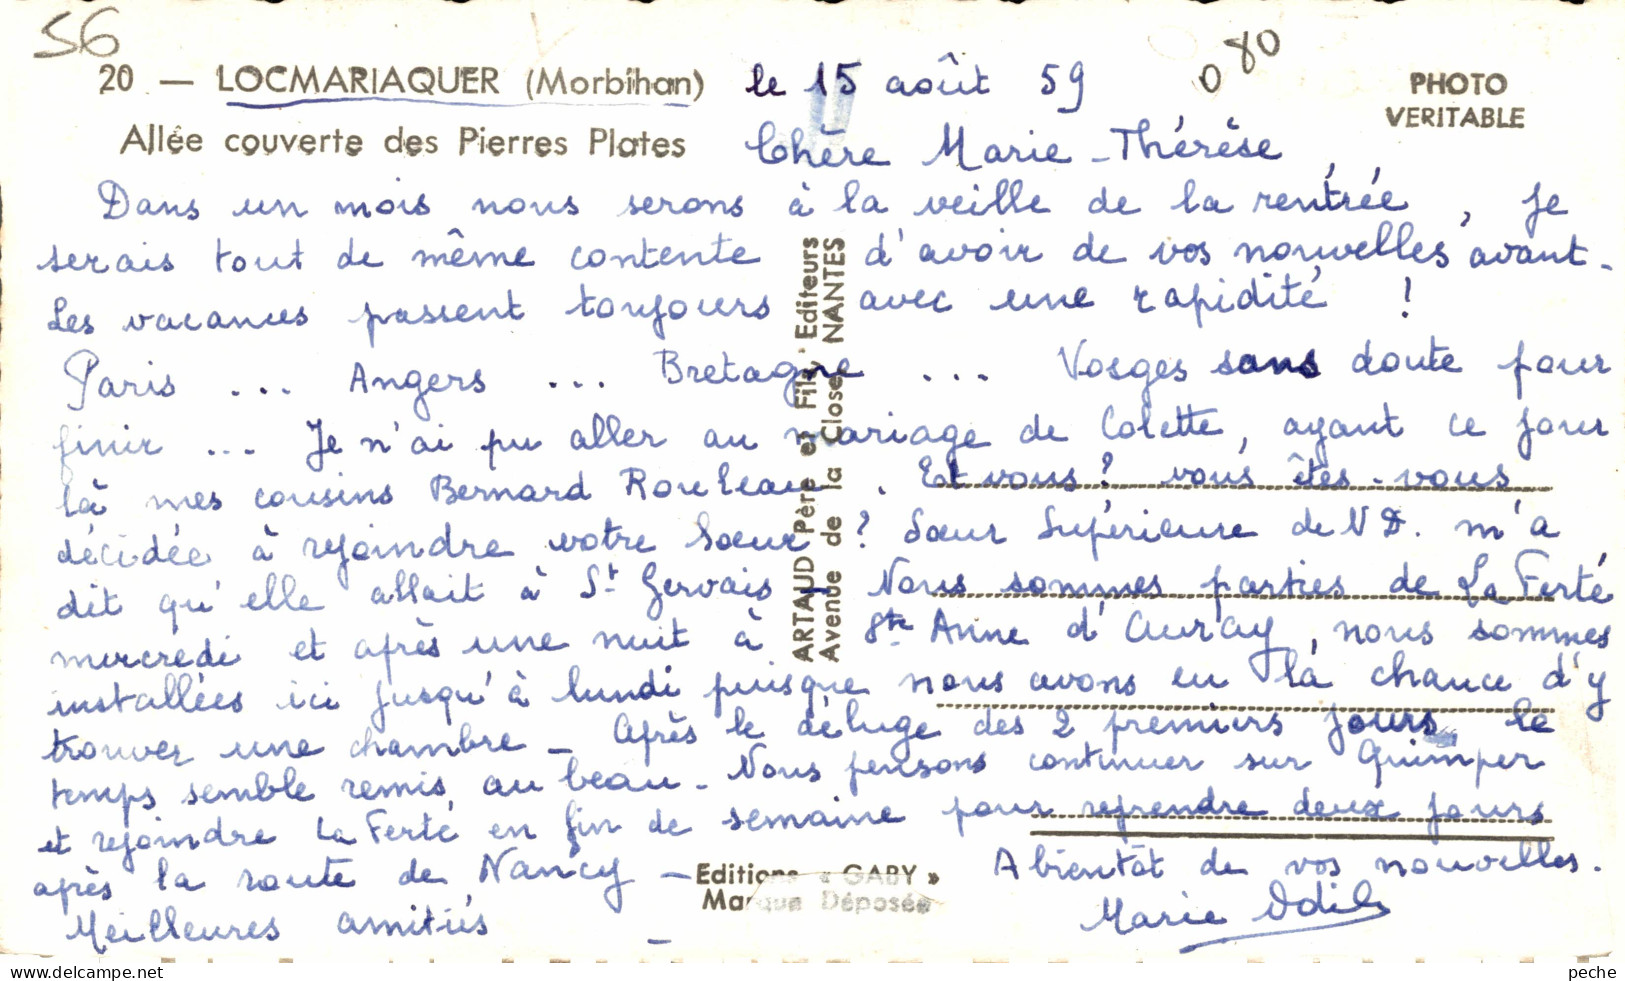 56
080
20 — LOCMARIAQUER (Morbihan) le 15 août 59
PHOTO
VERITABLE
Allée couverte des Pierres Plates
Chère Marie-Thérèse,
Dans un mois nous serons à la veille de la rentrée, je
serais tout de même contente d'avoir de vos nouvelles avant.
Les vacances passent toujours avec une rapidité !
Paris ... Angers ... Bretagne ... Vosges sans doute pour
finir ... Je n'ai pu aller au mariage de Colette, ayant ce jour
là mes cousins Bernard Rouleau. Et vous ? vous êtes-vous
décidée à rejoindre votre Soeur ? Soeur Supérieure de N D. m'a
dit qu'elle allait à St Gervais. Nous sommes parties de La Ferté
mercredi et après une nuit à Ste Anne d'Auray, nous sommes
installées ici jusqu'à lundi puisque nous avons eu la chance d'y
trouver une chambre - Après le déluge des 2 premiers jours, le
temps semble remis au beau - Nous pensons continuer sur Quimper
et rejoindre La Ferté en fin de semaine pour reprendre deux jours
après la route de Nancy — A bientôt de vos nouvelles.
Meilleures amitiés —
Marie Odile
ARTAUD Père et Fils, Editeurs
Avenue de la Close, NANTES
Editions « GABY »
Marque Déposée
peche